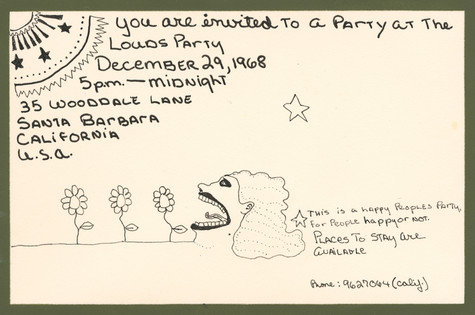 you are invited To a Party at The
Louds Party
December 29, 1968
5 p.m. — midnight
35 Wooddale Lane
Santa Barbara
California
U.S.a.
This is a happy Peoples Party,
For People happy or not.
Places To Stay are
available
Phone: 9627044 (caly.)